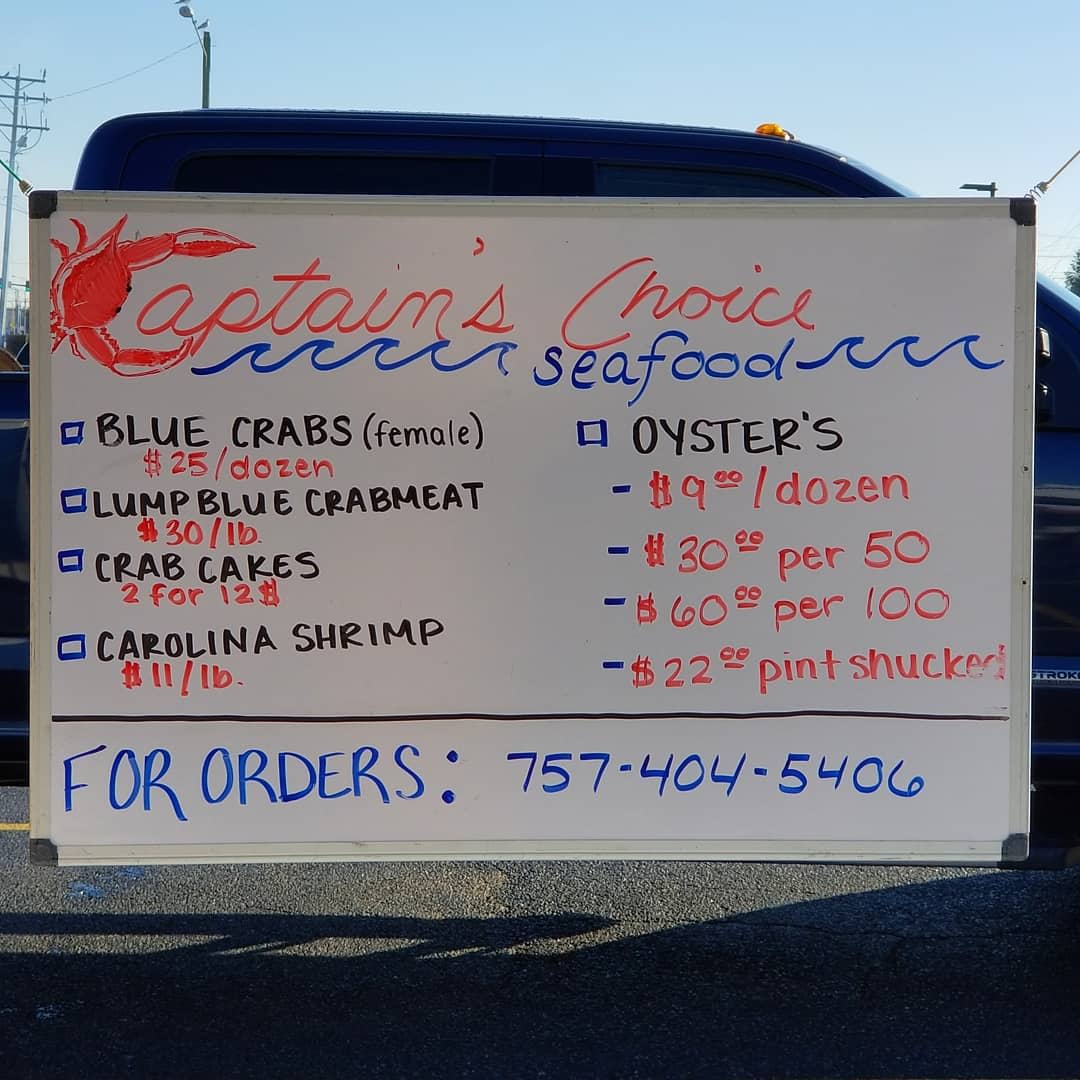 Captain's Choice
seafood
BLUE CRABS (female)
$25/dozen
LUMP BLUE CRABMEAT
$30/lb.
CRAB CAKES
2 for 12$
CAROLINA SHRIMP
$11/lb.
OYSTER'S
- $9.00/dozen
- $30.00 per 50
- $60.00 per 100
- $22.00 pint shucked
FOR ORDERS: 757-404-5406
STROKE